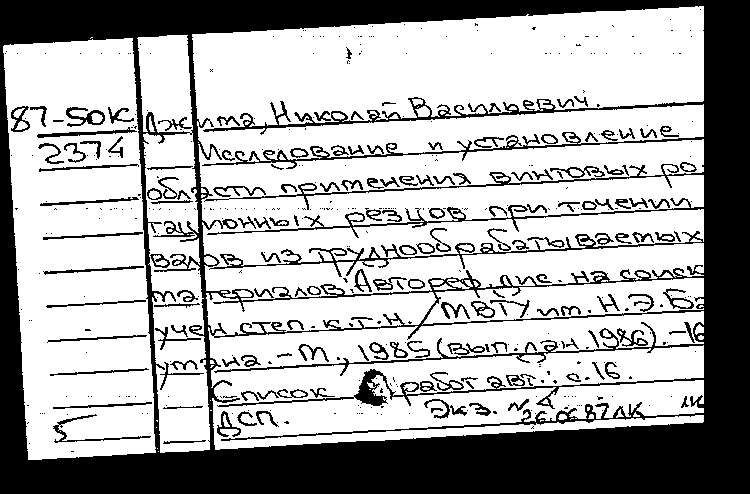 87-50К Джита, Николай Васильевич.
2374 Исследование и установление
области применения винтовых ро-
тационных резцов при точении
валов из труднообрабатываемых
материалов: Автореф. дис. на соиск
учен. степ. к.т.н. / МВТУ им. Н.Э. Ба
умана. - М., 1985 (вып. дан. 1986). - 16
Список работ авт.: с. 16.
5 ДСП. Экз. N 4
26.06.87 ЛК